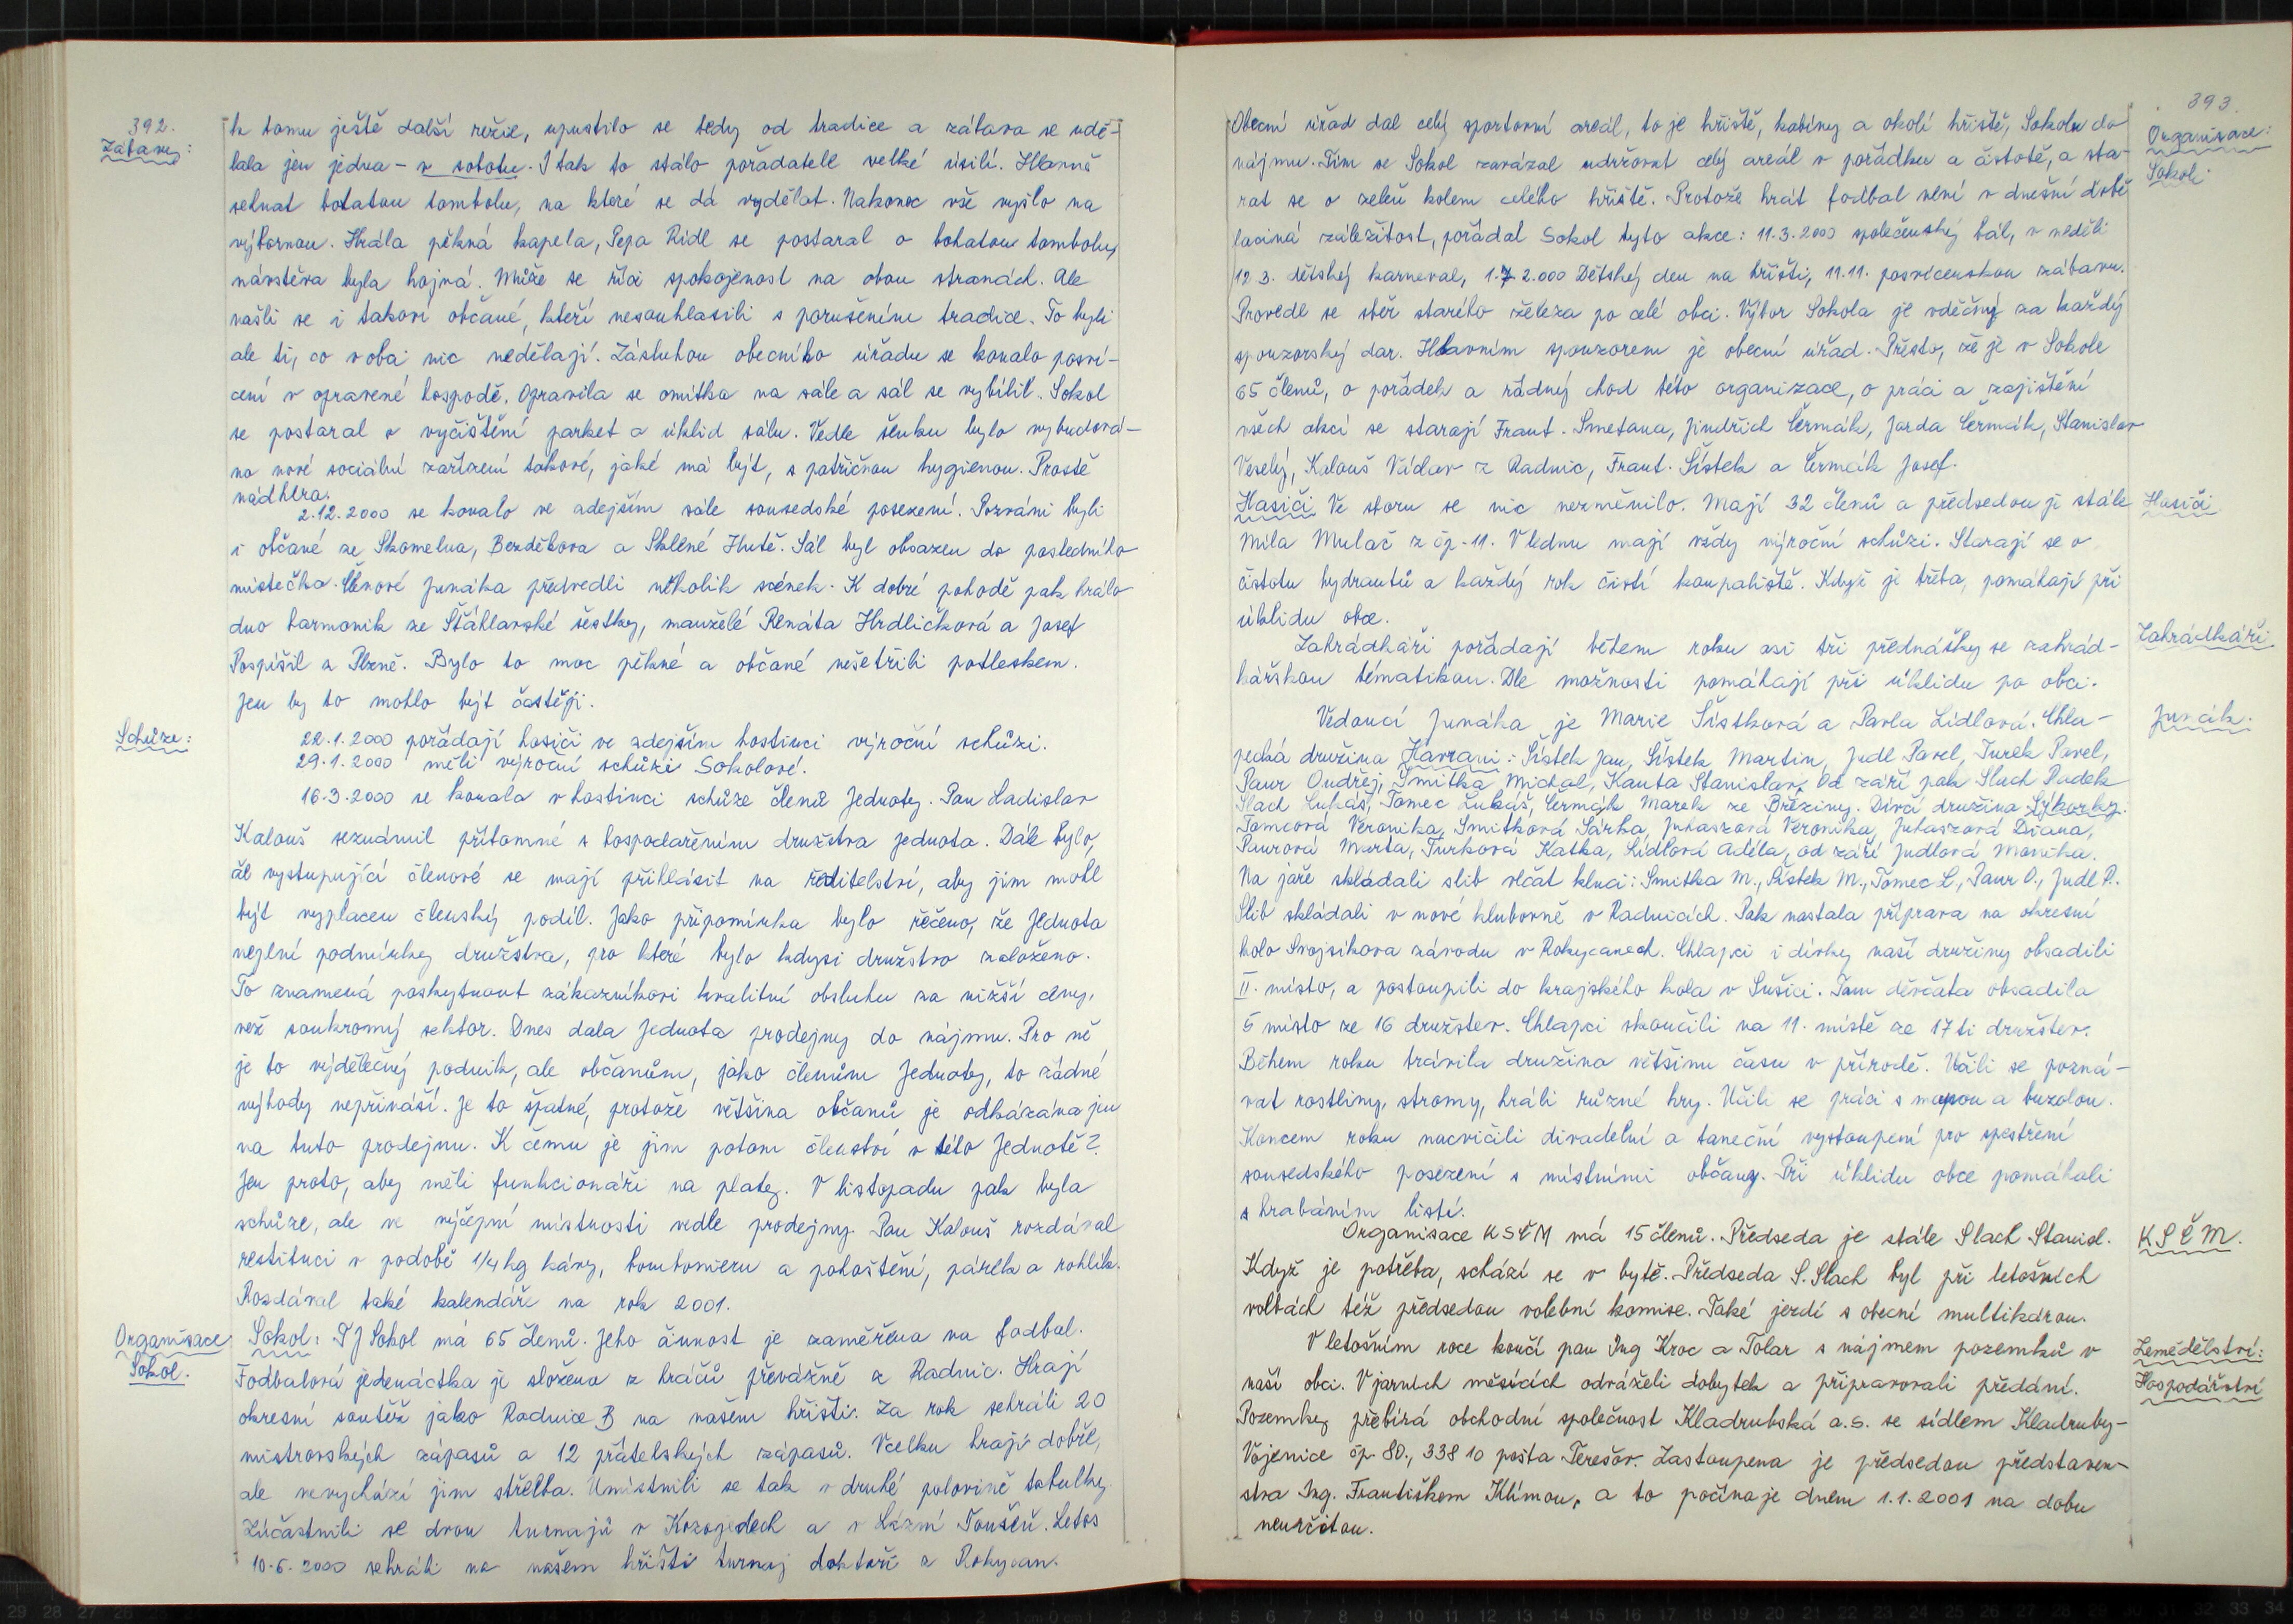 392.
Zábavy:
k tomu ještě další režie, upustilo se tedy od tradice a zábava se udě-
lala jen jedna - v sobotu. I tak to stálo pořadatele velké úsilí. Hlavně
sehnat bohatou tombolu, na které se dá vydělat. Nakonec vše vyšlo na
výbornou. Hrála pěkná kapela, Pepa Ridl se postaral o bohatou tombolu,
návštěva byla hojná. Může se říci spokojenost na obou stranách. Ale
našli se i takoví občané, kteří nesouhlasili s porušením tradice. To byli
ale ti, co v obci nic nedělají. Zásluhou obecního úřadu se konalo posví-
cení v opravené hospodě. Opravila se omítka na sále a sál se vybílil. Sokol
se postaral o vyčištění parket a úklid sálu. Vedle šenku bylo vybudová-
no nové sociální zařízení takové, jaké má být, s patřičnou hygienou. Prostě
nádhera.
2.12.2000 se konalo ve zdejším sále sousedské posezení. Pozváni byli
i občané ze Skomelna, Bezděkova a Sklené Hutě. Sál byl obsazen do posledního
místečka. Členové Junáka předvedli několik scének. K dobré pohodě pak hrálo
duo harmonik ze Šťáhlavské šestky, manželé Renáta Hrdličková a Josef
Pospíšil z Plzně. Bylo to moc pěkné a občané nešetřili potleskem.
Jen by to mohlo být častěji.
Schůze:
22.1.2000 pořádají hasiči ve zdejším hostinci výroční schůzi.
29.1.2000 měli výroční schůzi Sokolové.
16.3.2000 se konala v hostinci schůze členů Jednoty. Pan Ladislav
Kalouš seznámil přítomné s hospodařením družstva Jednota. Dále bylo,
že vystupující členové se mají přihlásit na ředitelství, aby jim mohl
být vyplacen členský podíl. Jako připomínka bylo řečeno, že Jednota
neplní podmínky družstva, pro které bylo kdysi družstvo založeno.
To znamená poskytnout zákazníkovi kvalitní obsluhu za nižší ceny,
než soukromý sektor. Dnes dala Jednota prodejny do nájmu. Pro ně
je to výdělečný podnik, ale občanům, jako členům Jednoty, to žádné
výhody nepřináší. Je to špatné, protože většina občanů je odkázána jen
na tuto prodejnu. K čemu je jim potom členství v této Jednotě?
Jen proto, aby měli funkcionáři na platy. V listopadu pak byla
schůze, ale ve výčepní místnosti vedle prodejny. Pan Kalouš rozdával
restituci v podobě 1/4 kg kávy, bombonieru a pohoštění, párek a rohlík.
Rozdával také kalendáře na rok 2001.
Organisace
Sokol.
Sokol: TJ Sokol má 65 členů. Jeho činnost je zaměřena na fodbal.
Fodbalová jedenáctka je složena z hráčů převážně z Radnic. Hrají
okresní soutěž jako Radnice B na našem hřišti. Za rok sehráli 20
mistrovských zápasů a 12 přátelských zápasů. Vcelku hrají dobře,
ale nevychází jim střelba. Umístnili se tak v druhé polovině tabulky.
Zúčastnili se dvou turnajů v Kozojedech a v Lázni Toušeň. Letos
10.6.2000 sehráli na našem hřišti turnaj doktoři z Rokycan.
393.
Organisace:
Sokol:
Obecní úřad dal celý sportovní areál, to je hřiště, kabiny a okolí hřiště, Sokolu do
nájmu. Tím se Sokol zavázal udržovat celý areál v pořádku a čistotě, a sta-
rat se o zeleň kolem celého hřiště. Protože hrát fodbal není v dnešní době
laciná záležitost, pořádal Sokol tyto akce: 11.3.2000 společenský bál, v neděli
12.3. dětský karneval, 1.7 2.000 Dětský den na hřišti, 11.11. posvícenskou zábavu.
Provedl se sběr starého železa po celé obci. Výbor Sokola je vděčný za každý
sponzorský dar. Hlavním sponzorem je obecní úřad. Přesto, že je v Sokole
65 členů, o pořádek a řádný chod této organizace, o práci a zajištění
všech akcí se starají Frant. Smetana, Jindřich Čermák, Jarda Čermák, Stanislav
Veselý, Kalouš Václav z Radnic, Frant. Šístek a Čermák Josef.
Hasiči Ve sboru se nic nezměnilo. Mají 32 členů a předsedou je stále
Hasiči
Míla Mulač z čp. 11. V lednu mají vždy výroční schůzi. Starají se o
čistotu hydrantů a každý rok čistí koupaliště. Když je třeba, pomáhají při
úklidu obce.
Zahrádkáři
Zahrádkáři pořádají během roku asi tři přednášky se zahrád-
kářskou tématikou. Dle možnosti pomáhají při úklidu po obci.
Junák.
Vedoucí Junáka je Marie Šístková a Pavla Lídlová. Chla-
pecká družina Havrani: Šístek Jan, Šístek Martin, Judl Pavel, Turek Pavel,
Paur Ondřej, Smitka Michal, Kauta Stanislav, Od září pak Slach Radek
Slach Lukáš, Tomec Lukáš, Čermák Marek ze Březiny. Dívčí družina Sýkorky.
Tomcová Veronika, Smitková Šárka, Juhaszová Veronika, Juhaszová Diana,
Paurová Marta, Turková Katka, Lídlová Adéla, od září Judlová Monika.
Na jaře skládali slib vlčat kluci: Smitka M., Šístek M., Tomec L., Paur O., Judl P.
Slib skládali v nové klubovně v Radnicích. Pak nastala příprava na okresní
kolo Svojsíkova závodu v Rokycanech. Chlapci i dívky naší družiny obsadili
II. místo, a postoupili do krajského kola v Sušici. Tam děvčata obsadila
5 místo ze 16 družstev. Chlapci skončili na 11. místě ze 17 ti družstev.
Během roku trávila družina většinu času v přírodě. Učili se pozná-
vat rostliny, stromy, hráli různé hry. Učili se práci s mapou a buzolou.
Koncem roku nacvičili divadelní a taneční vystoupení pro zpestření
sousedského posezení s místními občany. Při úklidu obce pomáhali
s hrabáním listí.
KSČM.
Organisace KSČM má 15 členů. Předseda je stále Slach Stanisl.
Když je potřeba, schází se v bytě. Předseda S. Slach byl při letošních
volbách též předsedou volební komise. Také jezdí s obecní multikárou.
Zemědělství:
Hospodářství
V letošním roce končí pan Ing Kroc a Tolar s nájmem pozemků v
naší obci. V jarních měsících odváželi dobytek a připravovali předání.
Pozemky přebírá obchodní společnost Kladrubská a.s. se sídlem Kladruby-
Vojenice čp 80., 338 10 pošta Terešov. Zastoupena je předsedou představen-
stva Ing. Františkem Klímou, a to počínaje dnem 1.1.2001 na dobu
neurčitou.